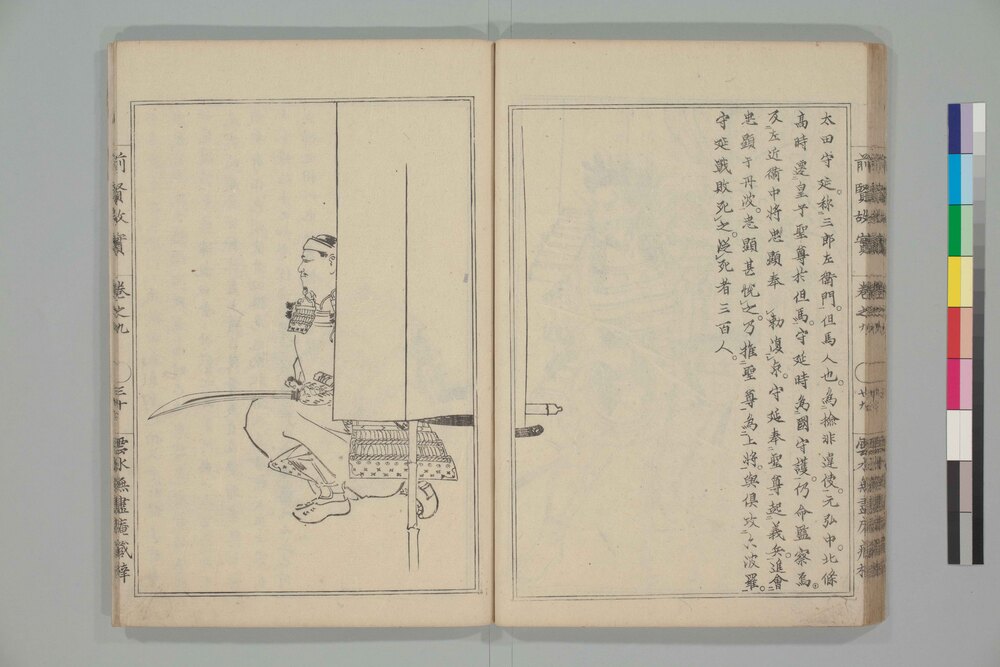 太田守延。称三郎左衛門。但馬人也。為撿非違使。元弘中。北條
高時遷皇子聖尊於但馬。守延時為國守護。仍命監察焉。
及左近衛中将忠顕奉 勅復京。守延奉聖尊起義兵。進會
忠顕于丹波。忠顕甚悦之。乃推聖尊為上将。與俱攻六波羅。
守延戰敗死之。從死者三百人。
前賢故實 卷之九
前賢故實 卷之九 三十 雲水無盡庵藏梓